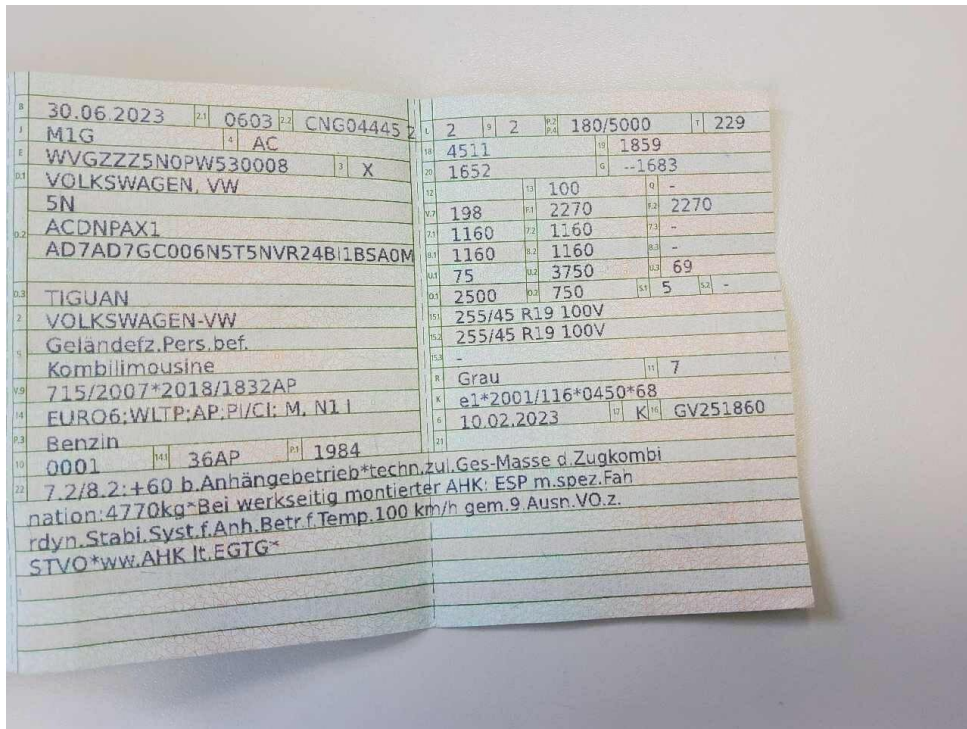 B 30.06.2023 2.1 0603 2.2 CNG04445 2
J M1G 4 AC
E WVGZZZ5N0PW530008 3 X
D.1 VOLKSWAGEN, VW
5N
D.2 ACDNPAX1
AD7AD7GC006N5T5NVR24BI1BSA0M
D.3 TIGUAN
2 VOLKSWAGEN-VW
5 Geländefz.Pers.bef.
Kombilimousine
V.9 715/2007*2018/1832AP
14 EURO6;WLTP;AP;PI/CI; M, N1 I
P.3 Benzin
10 0001 14.1 36AP P.1 1984
L 2 9 2 P.2 P.4 180/5000 T 229
18 4511 19 1859
20 1652 G --1683
12 13 100 Q -
V.7 198 F.1 2270 F.2 2270
7.1 1160 7.2 1160 7.3 -
8.1 1160 8.2 1160 8.3 -
U.1 75 U.2 3750 U.3 69
O.1 2500 O.2 750 S.1 5 S.2 -
15.1 255/45 R19 100V
15.2 255/45 R19 100V
15.3 -
R Grau 11 7
K e1*2001/116*0450*68
6 10.02.2023 17 K 16 GV251860
21
22 7.2/8.2:+60 b.Anhängebetrieb*techn.zul.Ges-Masse d.Zugkombi
nation:4770kg*Bei werkseitig montierter AHK: ESP m.spez.Fah
rdyn.Stabi.Syst.f.Anh.Betr.f.Temp.100 km/h gem.9.Ausn.VO.z.
STVO*ww.AHK lt.EGTG*